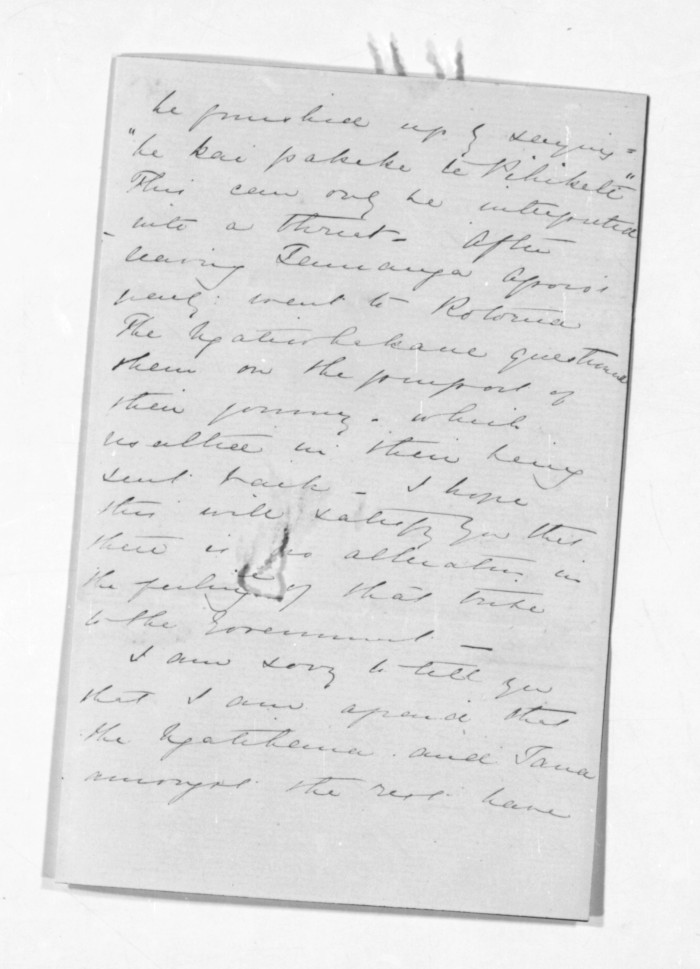 he finished up by saying -
"he kai pakeke te Pihikete"
This can only be interpreted
into a threat - After
leaving Tauranga
party went to Rotorua
The Ngatiwhakaue questioned
them on the purport of
their journey - which
resulted in their being
sent back - I hope
this will satisfy you that
there is no alteration in
the feeling of that tribe
to the Government -
I am sorry to tell you
that I am afraid that
the and Tana
amongst the rest have